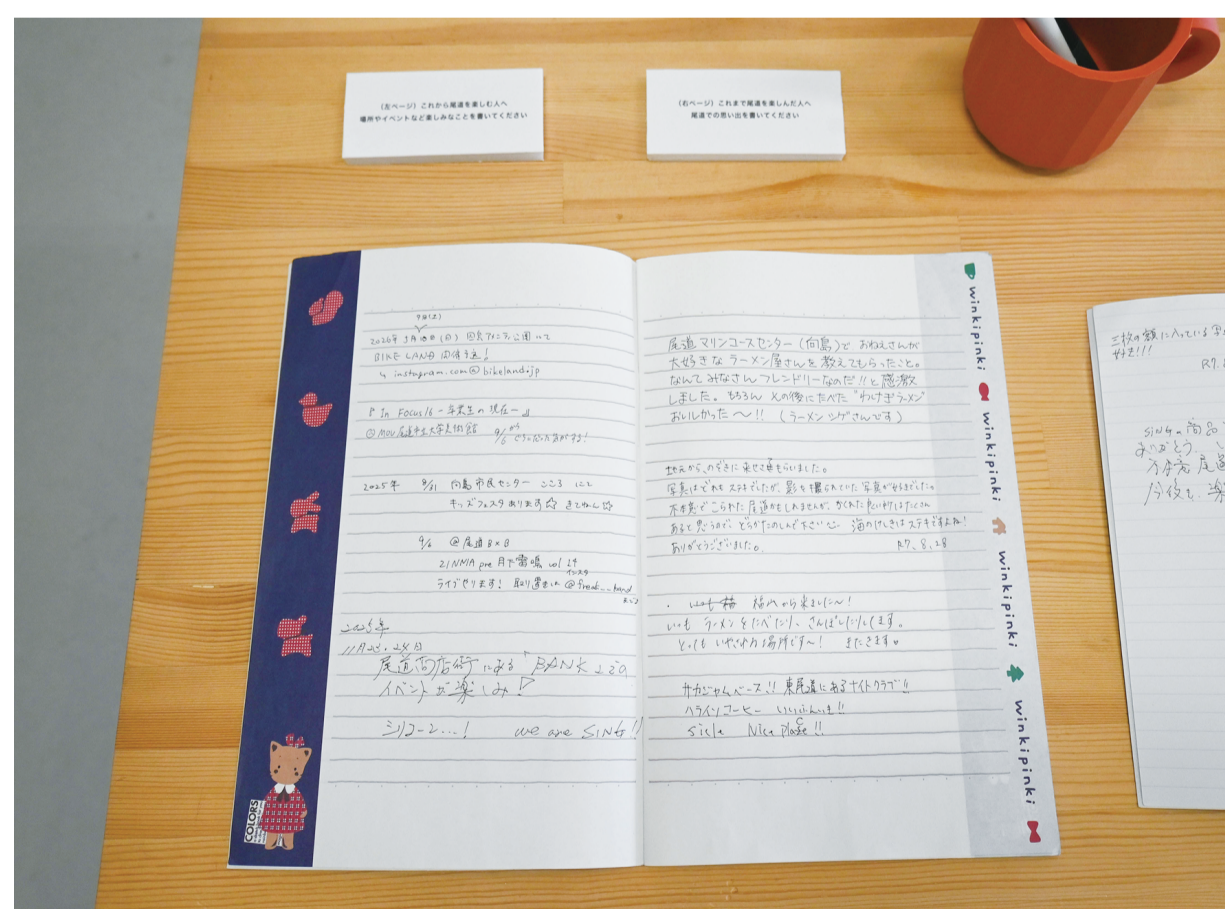 （左ページ）これから尾道を楽しむ人へ
場所やイベントなど楽しみなことを書いてください
（右ページ）これまで尾道を楽しんだ人へ
尾道での思い出を書いてください
9日(土)
BIKE LAND 開催予定!
↳ instagram.com@bikeland.jp
『In Focus/6 -卒業生の現在-』
@MOU尾道市立大学美術館 9/6から
2025年 8/31 向島市民センター こころ にて
キッズフェスタあります☆ きてねん☆
9/6 @尾道B×B
ZINNIA pre 月下雷鳴 vol 24
インスタ
ライブやります! 取り置きは @freak__hand
まで
2025年
11月23・24日
尾道商店街にある「BANK」での
イベントが楽しみ!
シリコーン...! we are SING!!
尾道マリンコースセンター(向島)で おねえさんが
大好きなラーメン屋さんを教えてもらったこと。
なんてみなさんフレンドリーなのだ!!と感激
しました。もちろん その後にたべた"わけぎラーメン"
おいしかった〜!! (ラーメンツゲさんです)
地元から、のぞきに来させてもらいました。
写真はどれもステキでしたが、影を撮られていた写真が好きでした。
あると思うので、どうかたのしんで下さい 海のけしきはステキですよね!
ありがとうございました。 R7.8.28
・いつも 福山から来ました〜!
いつも ラーメンをたべたり、さんぽしたりします。
とてもいやされる場所です〜! またきます。
サカジャムベース!! 東尾道にあるナイトクラブ!!
ハライソコーヒー いいふんいき!!
sicla Nice place!!
winkipinki
winkipinki
winkipinki
winkipinki
COLORS
三枚の額に入っている
好き!!!
R7.8
SINGの商品
ありがとう
今後も、楽